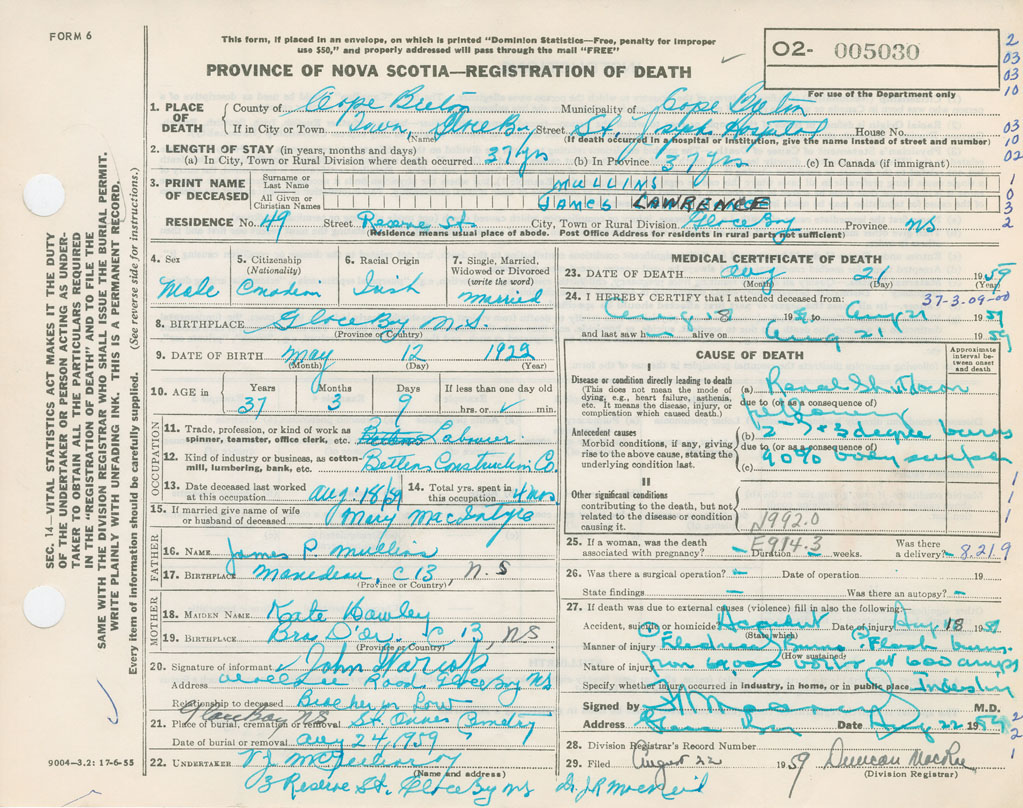 FORM 6
This form, if placed in an envelope, on which is printed "Dominion Statistics—Free, penalty for improper
use $50," and properly addressed will pass through the mail "FREE"
PROVINCE OF NOVA SCOTIA—REGISTRATION OF DEATH
02- 005030
For use of the Department only
2
03
03
10
03
10
02
1
0
3
2
SEC. 14—VITAL STATISTICS ACT MAKES IT THE DUTY
OF THE UNDERTAKER OR PERSON ACTING AS UNDER-
TAKER TO OBTAIN ALL THE PARTICULARS REQUIRED
IN THE "REGISTRATION OF DEATH" AND TO FILE THE
SAME WITH THE DIVISION REGISTRAR WHO SHALL ISSUE THE BURIAL PERMIT.
WRITE PLAINLY WITH UNFADING INK. THIS IS A PERMANENT RECORD.
Every item of information should be carefully supplied. (See reverse side for instructions.)
1. PLACE OF DEATH County of Cape Breton Municipality of Cape Breton
If in City or Town Town, Glace Bay Street St. Josephs Hospital House No.
(Name) (If death occurred in a hospital or institution, give the name instead of street and number)
2. LENGTH OF STAY (in years, months and days)
(a) In City, Town or Rural Division where death occurred 37 yrs (b) In Province 37 yrs (c) In Canada (if immigrant)
3. PRINT NAME OF DECEASED Surname or Last Name MULLINS
All Given or Christian Names JAMES LAWRENCE
RESIDENCE No. 49 Street Reserve St. City, Town or Rural Division Glace Bay Province NS
(Residence means usual place of abode. Post Office Address for residents in rural party not sufficient)
4. Sex Male
5. Citizenship (Nationality) Canadian
6. Racial Origin Irish
7. Single, Married, Widowed or Divorced (write the word) Married
8. BIRTHPLACE Glace Bay N.S.
(Province or Country)
9. DATE OF BIRTH May 12 1922
(Month) (Day) (Year)
10. AGE in Years 37 Months 3 Days 9 If less than one day old hrs. or min.
OCCUPATION
11. Trade, profession, or kind of work as spinner, teamster, office clerk, etc. Labourer
12. Kind of industry or business, as cotton-mill, lumbering, bank, etc. Bettens Construction Co.
13. Date deceased last worked at this occupation Aug: 18/59 14. Total yrs. spent in this occupation 4 mos
15. If married give name of wife or husband of deceased Mary MacIntyre
FATHER
16. NAME James P. Mullins
17. BIRTHPLACE C 13, N.S
(Province or Country)
MOTHER
18. MAIDEN NAME Kate Hawley
19. BIRTHPLACE Bras D'or. C 13, NS
(Province or Country)
20. Signature of informant John
Address Road, Glace Bay NS
Relationship to deceased Brother in Law
21. Place of burial, cremation or removal Glace Bay NS St. Annes Cemetery
Date of burial or removal Aug 24, 1959
22. UNDERTAKER V.J. McGillivray
(Name and address)
3 Reserve St. Glace Bay NS Dr. J R MacNeil
9004—3.2: 17-6-55
MEDICAL CERTIFICATE OF DEATH
23. DATE OF DEATH Aug 21 1959
(Month) (Day) (Year)
37-3-09-00
24. I HEREBY CERTIFY that I attended deceased from:
Aug 18 1959 to Aug 21 1959
and last saw h alive on Aug 21 1959
CAUSE OF DEATH
Approximate interval between onset and death
I
Disease or condition directly leading to death
(This does not mean the mode of dying, e.g., heart failure, asthenia, etc. It means the disease, injury, or complication which caused death.)
(a) Renal Shutdown
due to (or as a consequence of)
Antecedent causes
Morbid conditions, if any, giving rise to the above cause, stating the underlying condition last.
(b) 2 + 3 degree burns
due to (or as a consequence of)
(c) 90% body surface
II
Other significant conditions
contributing to the death, but not related to the disease or condition causing it.
N992.0
E914.3
25. If a woman, was the death associated with pregnancy? – Duration weeks. Was there a delivery? – 8.21.9
26. Was there a surgical operation? – Date of operation 19
State findings – Was there an autopsy? –
27. If death was due to external causes (violence) fill in also the following:
Accident, suicide or homicide? Accident Date of injury Aug 18 1959
(State which)
Manner of injury (1) Electrical Burns (2) Flash burns.
(How sustained)
Nature of injury at 600 amps
Specify whether injury occurred in industry, in home, or in public place Industry
Signed by M.D.
Address Glace Bay Date Aug 22 1959
28. Division Registrar's Record Number
29. Filed August 22 1959 Duncan MacRae
(Division Registrar)
1
1
1
2
2
1